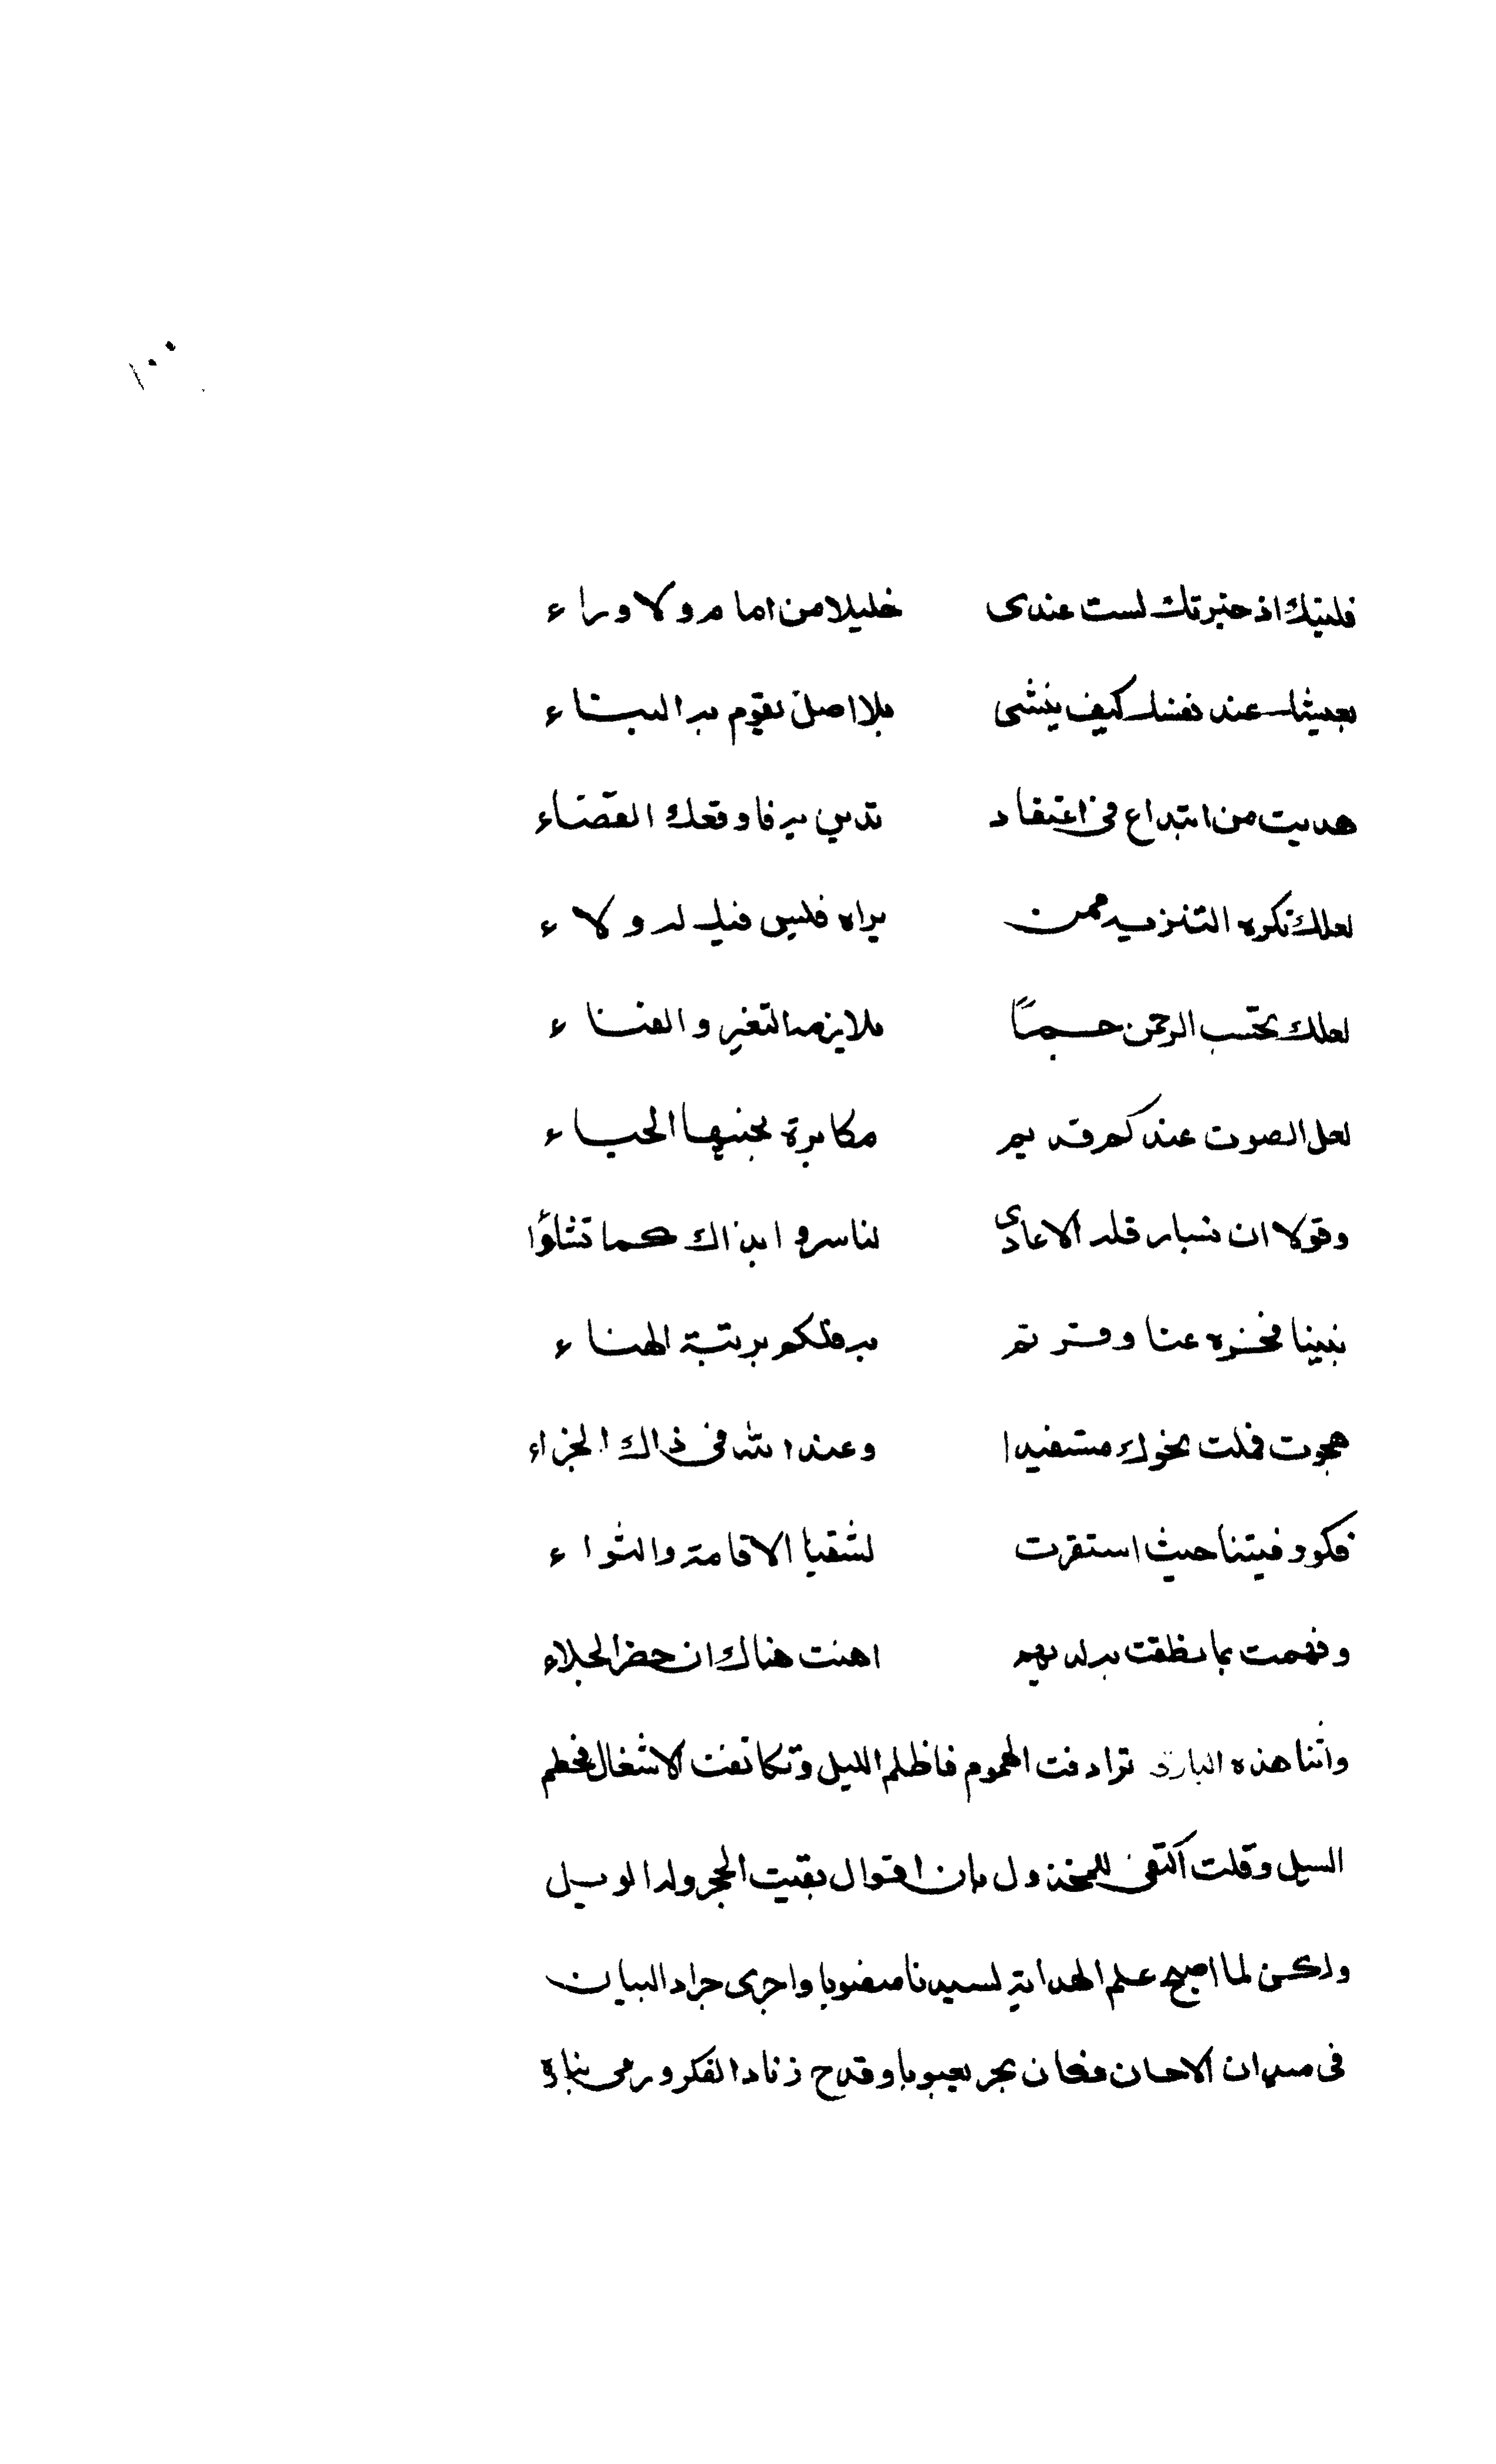 ١٠٠
فليتك اذ خبرتك لست عندى خليلا من امام ولا وراء
بعيشك عند نفسك كيف ينشى بلا اصل يقوم به البناء
هديت من ابتداع فى اعتقاد تدين به فاوقعك القضاء
لعلك تكره التنزيه ممن يراه فليس فيك له ولا ء
لعلك تحتسب الرحمن جسمًا يلايزمه التغير والفناء
لعل الصوت عندكم قديم مكابرة يجنبها الحياء
وقولا ان نسبار قله الاعادى لنا سروا بذاك كما تشاؤا
نبينا فخزه عنا وفتر تم به فلكم بريبة الهناء
هجوت فملت نحوك مستفيدا وعند الله فى ذاك الجزاء
فكود فيتنا حيث استقرت لشقيا الاقامة والثواء
وفهمت بما نطقت به لديهم اهنت هناك ان حضر الجلاء
واتنا هذه البارق ترادفت الهموم فاظلم الليل وتكاتفت الاشغال فحطم
السيل وقلت اكتفى للمخذول بان اقوال بقيت الحجر وله الويل
ولكن لما اصبح علم الهداية لسيدنا منضوبا واجرى جراد البيان
فى ميدان الاحسان فكان بحر يعبوبا وقدح زناد الفكر ورمى بناة